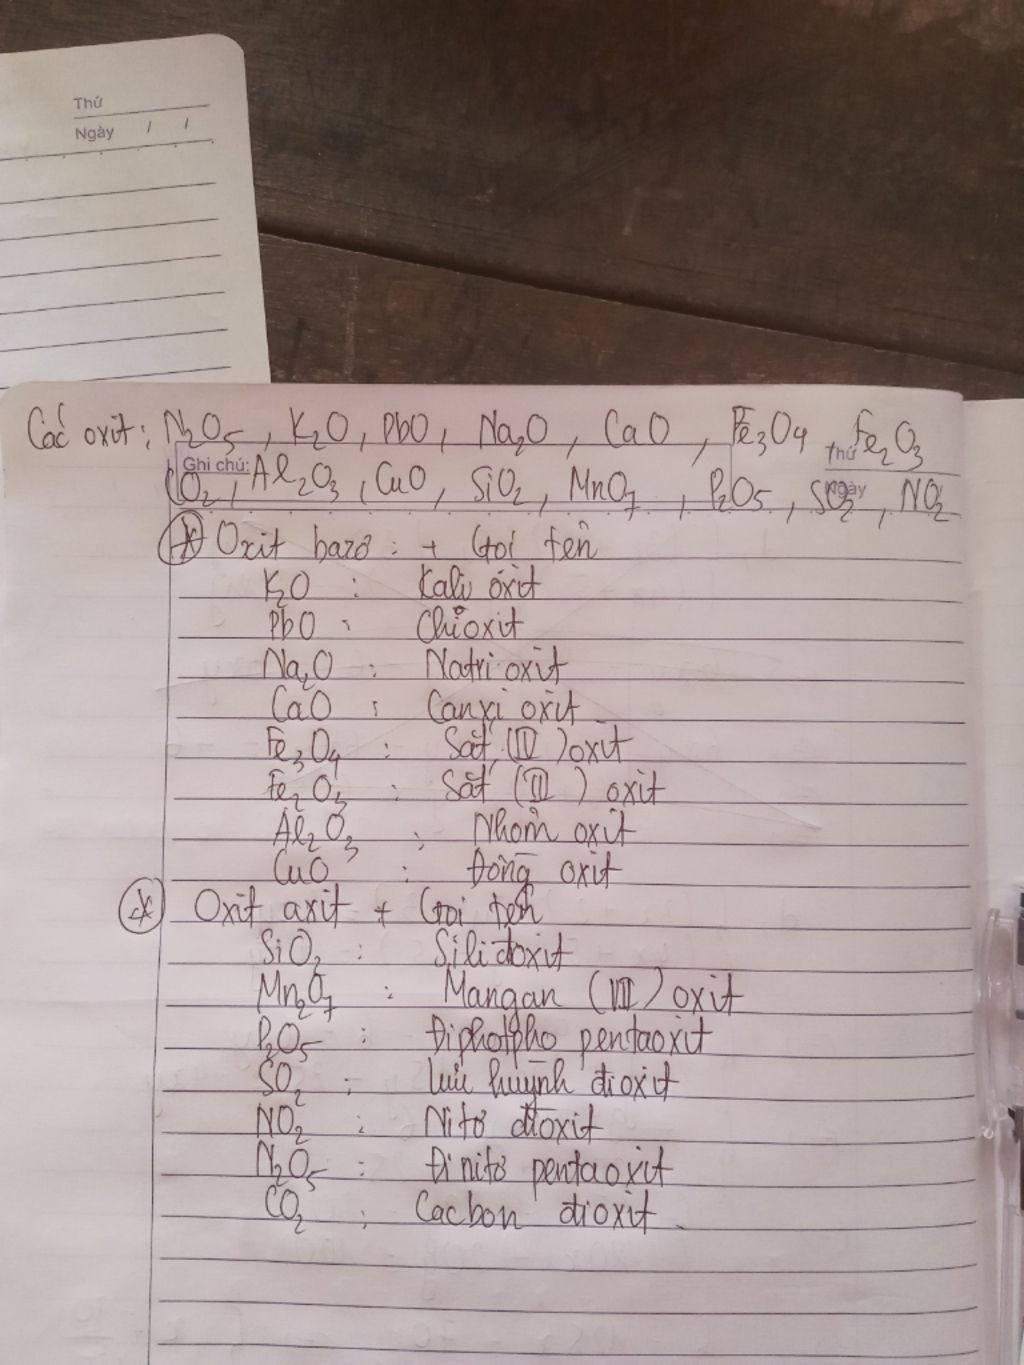 Thứ
Ngày / /
Các oxit: N₂O₅, K₂O, PbO, Na₂O, CaO, Fe₃O₄, Fe₂O₃
Thứ
Ghi chú:
CO₂, Al₂O₃, CuO, SiO₂, MnO₇, P₂O₅, SO₂, NO₂
Ngày
* Oxit bazơ: + Gọi tên
K₂O : Kali oxit
PbO : Chì oxit
Na₂O : Natri oxit
CaO : Canxi oxit
Fe₃O₄ : Sắt (IV) oxit
Fe₂O₃ : Sắt (III) oxit
Al₂O₃ : Nhôm oxit
CuO : Đồng oxit
* Oxit axit + Gọi tên
SiO₂ : Silic đioxit
Mn₂O₇ : Mangan (VII) oxit
P₂O₅ : Điphotpho pentaoxit
SO₂ : Lưu huỳnh đioxit
NO₂ : Nitơ đioxit
N₂O₅ : Đinitơ pentaoxit
CO₂ : Cacbon đioxit.